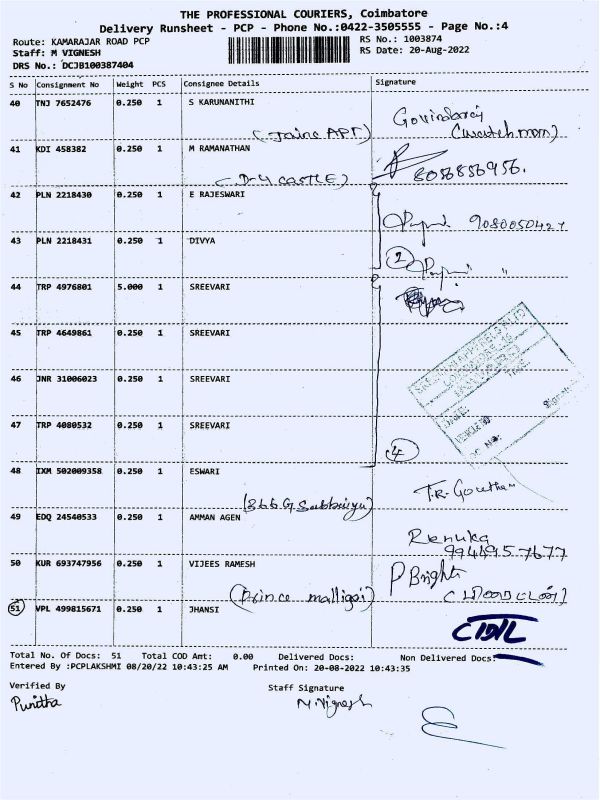 THE PROFESSIONAL COURIERS, Coimbatore
Delivery Runsheet - PCP - Phone No.:0422-3505555 - Page No.:4
Route: KAMARAJAR ROAD PCP
RS No.: 1003874
Staff: M VIGNESH
RS Date: 20-Aug-2022
DRS No.: DCJB100387404
S No Consignment No Weight PCS Consignee Details Signature
40 TNJ 7652476 0.250 1 S KARUNANITHI
(Jains APT)
41 KDI 458382 0.250 1 M RAMANATHAN 8056856956.
(D-4 CASTLE)
42 PLN 2218430 0.250 1 E RAJESWARI
9080050427
43 PLN 2218431 0.250 1 DIVYA
2
44 TRP 4976801 5.000 1 SREEVARI
45 TRP 4649861 0.250 1 SREEVARI
46 JNR 31006023 0.250 1 SREEVARI
47 TRP 4080532 0.250 1 SREEVARI
4
48 IXM 502009358 0.250 1 ESWARI
T.R. Goutham
(366 G
49 EDQ 24540533 0.250 1 AMMAN AGEN
Renuka
9944957677
50 KUR 693747956 0.250 1 VIJEES RAMESH P Bright
(Prince malligai)
51 VPL 499815671 0.250 1 JHANSI
Total No. Of Docs: 51 Total COD Amt: 0.00 Delivered Docs: Non Delivered Docs:
Entered By :PCPLAKSHMI 08/20/22 10:43:25 AM Printed On: 20-08-2022 10:43:35
Verified By Staff Signature
Punitha M.Vignesh